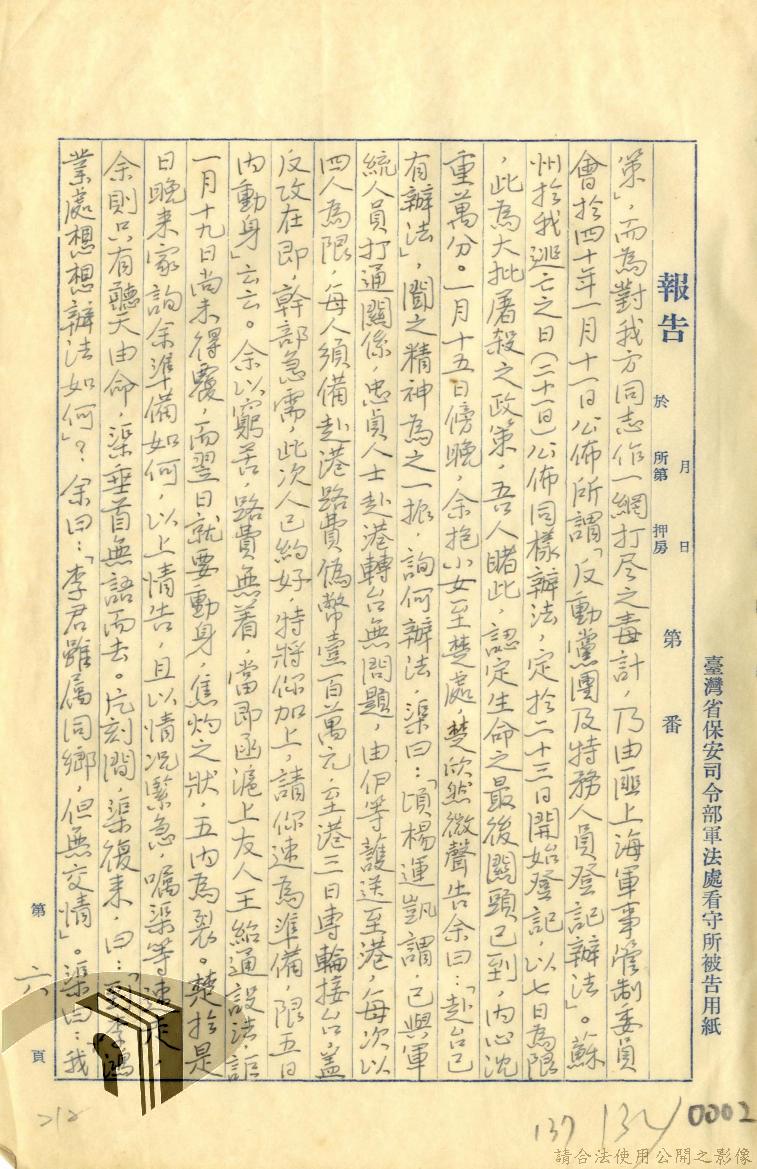 臺灣省保安司令部軍法處看守所被告用紙
報告
於 所第 押房
月 日
第 番
策」,而為對我方同志作一網打尽之毒計,乃由匪上海軍事管制委員
會於四十年一月十一日公佈所謂「反動黨團及特務人員登記辦法」。蘇
州於我逃亡之日(二十一日)公佈同樣辦法,定於二十三日開始登記,以七日為限
,此為大批屠殺之政策,吾人睹此,認定生命之最後關頭已到,內心沈
重萬分。一月十五日傍晚,余抱小女至楚處,楚欣然微聲告余曰:「赴台已
有辦法」,聞之精神為之一振,詢何辦法,渠曰:「頃楊運凱謂,已與軍
統人員打通關係,忠貞人士赴港轉台無問題,由伊等護送至港,每次以
四人為限,每人須備赴港路費偽幣壹百萬元,至港三日專輪接台,蓋
反攻在即,幹部急需,此次人已約好,特將你加上,請你速為準備,限五日
內動身」云云。余以窮苦,路費無着,當即函滬上友人王給通設法,詎
一月十九日尚未得覆,而翌日就要動身,焦灼之狀,五內為裂。楚於是
日晚来家詢余準備如何,以上情告,且以情况緊急,囑渠等速走,
余則只有聽天由命,渠垂首無語而去。片刻間,渠復来,曰:「到李鴻
業處想想辦法如何」?余曰:「李君雖属同鄉,但無交情」。渠曰:我
第 六 頁
212
137
132
0002
請合法使用公開之影像